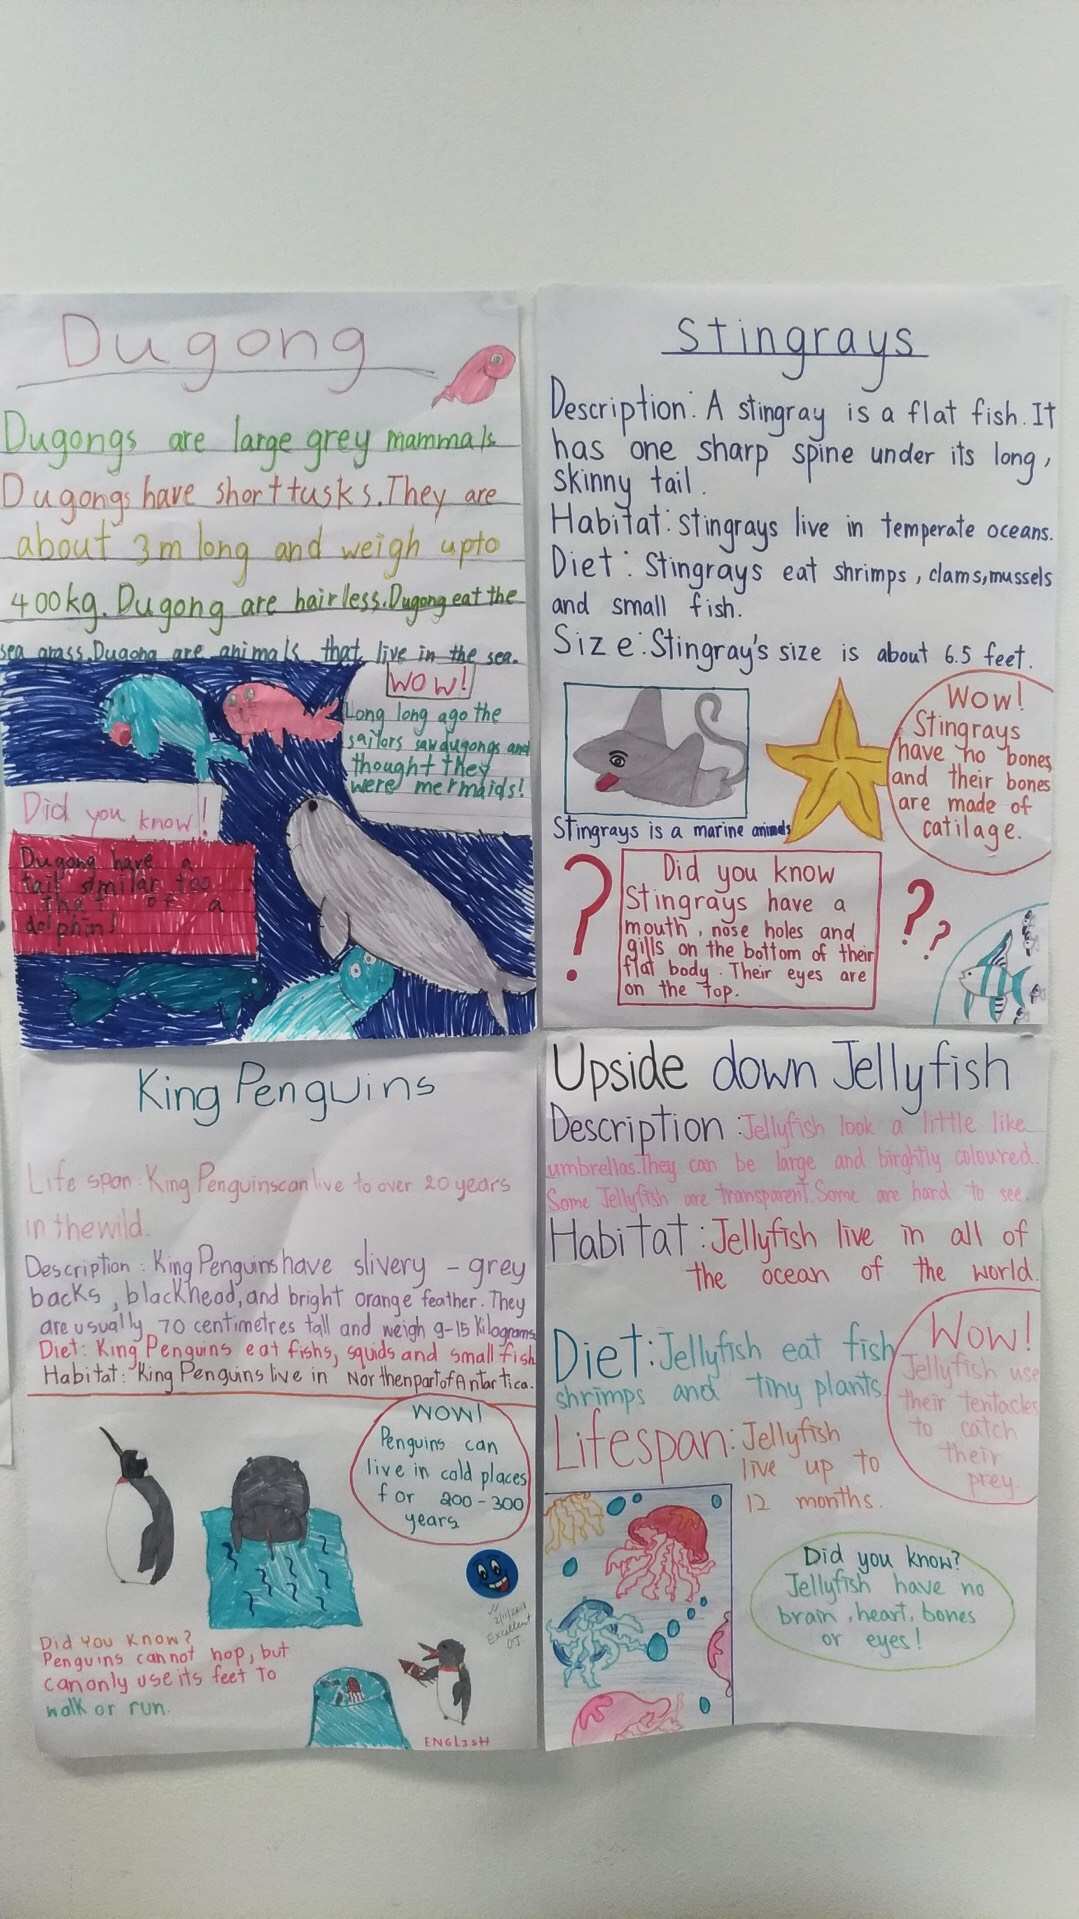 Dugong
Dugongs are large grey mammals
Dugongs have short tusks. They are
about 3m long and weigh upto
400kg. Dugong are hairless. Dugong eat the
sea grass. Dugong are animals that live in the sea.
WOW!
Long long ago the
sailors saw dugongs and
thought they
were mermaids!
Did you know!
Dugong have a
tail similar too
that of a
dolphin!
Stingrays
Description: A stingray is a flat fish. It
has one sharp spine under its long,
skinny tail.
Habitat: Stingrays live in temperate oceans.
Diet: Stingrays eat shrimps, clams, mussels
and small fish.
Size: Stingray's size is about 6.5 feet.
Wow!
Stingrays
have no bones
and their bones
are made of
catilage.
Stingrays is a marine animals
?
Did you know
Stingrays have a
mouth, nose holes and
gills on the bottom of their
flat body. Their eyes are
on the top.
??
King Penguins
Life span: King Penguins can live to over 20 years
in the wild.
Description: King Penguins have slivery - grey
backs, blackhead, and bright orange feather. They
are usually 70 centimetres tall and weigh 9-15 Kilograms
Diet: King Penguins eat fishs, squids and small fish
Habitat: King Penguins live in Northen part of Antartica.
WOW!
Penguins can
live in cold places
for 200-300
years
Excellent
Did You Know?
Penguins cannot hop, but
can only use its feet To
walk or run.
ENGLISH
Upside down Jellyfish
Description: Jellyfish look a little like
umbrellas. They can be large and birghtly coloured.
Some Jellyfish are transparent. Some are hard to see.
Habitat: Jellyfish live in all of
the ocean of the world.
Diet: Jellyfish eat fish
shrimps and tiny plants
Wow!
Jellyfish use
their tentacles
to catch
their
prey.
Lifespan: Jellyfish
live up to
12 months.
Did you know?
Jellyfish have no
brain, heart, bones
or eyes!